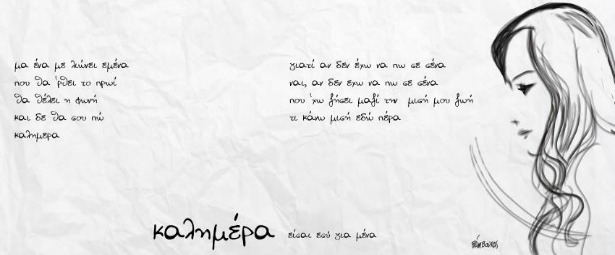 μα ένα με λιώνει εμένα
που θα 'ρθει το πρωί
θα θέλει η φωνή
και δε θα σου πώ
καλημερα
γιατί αν δεν έχω να πω σε σένα
ναι, αν δεν έχω να πω σε σένα
που 'χω ζήσει μαζί την μισή μου ζωή
τι κάνω μισή εδώ πέρα
καλημέρα είσαι εσύ για μένα